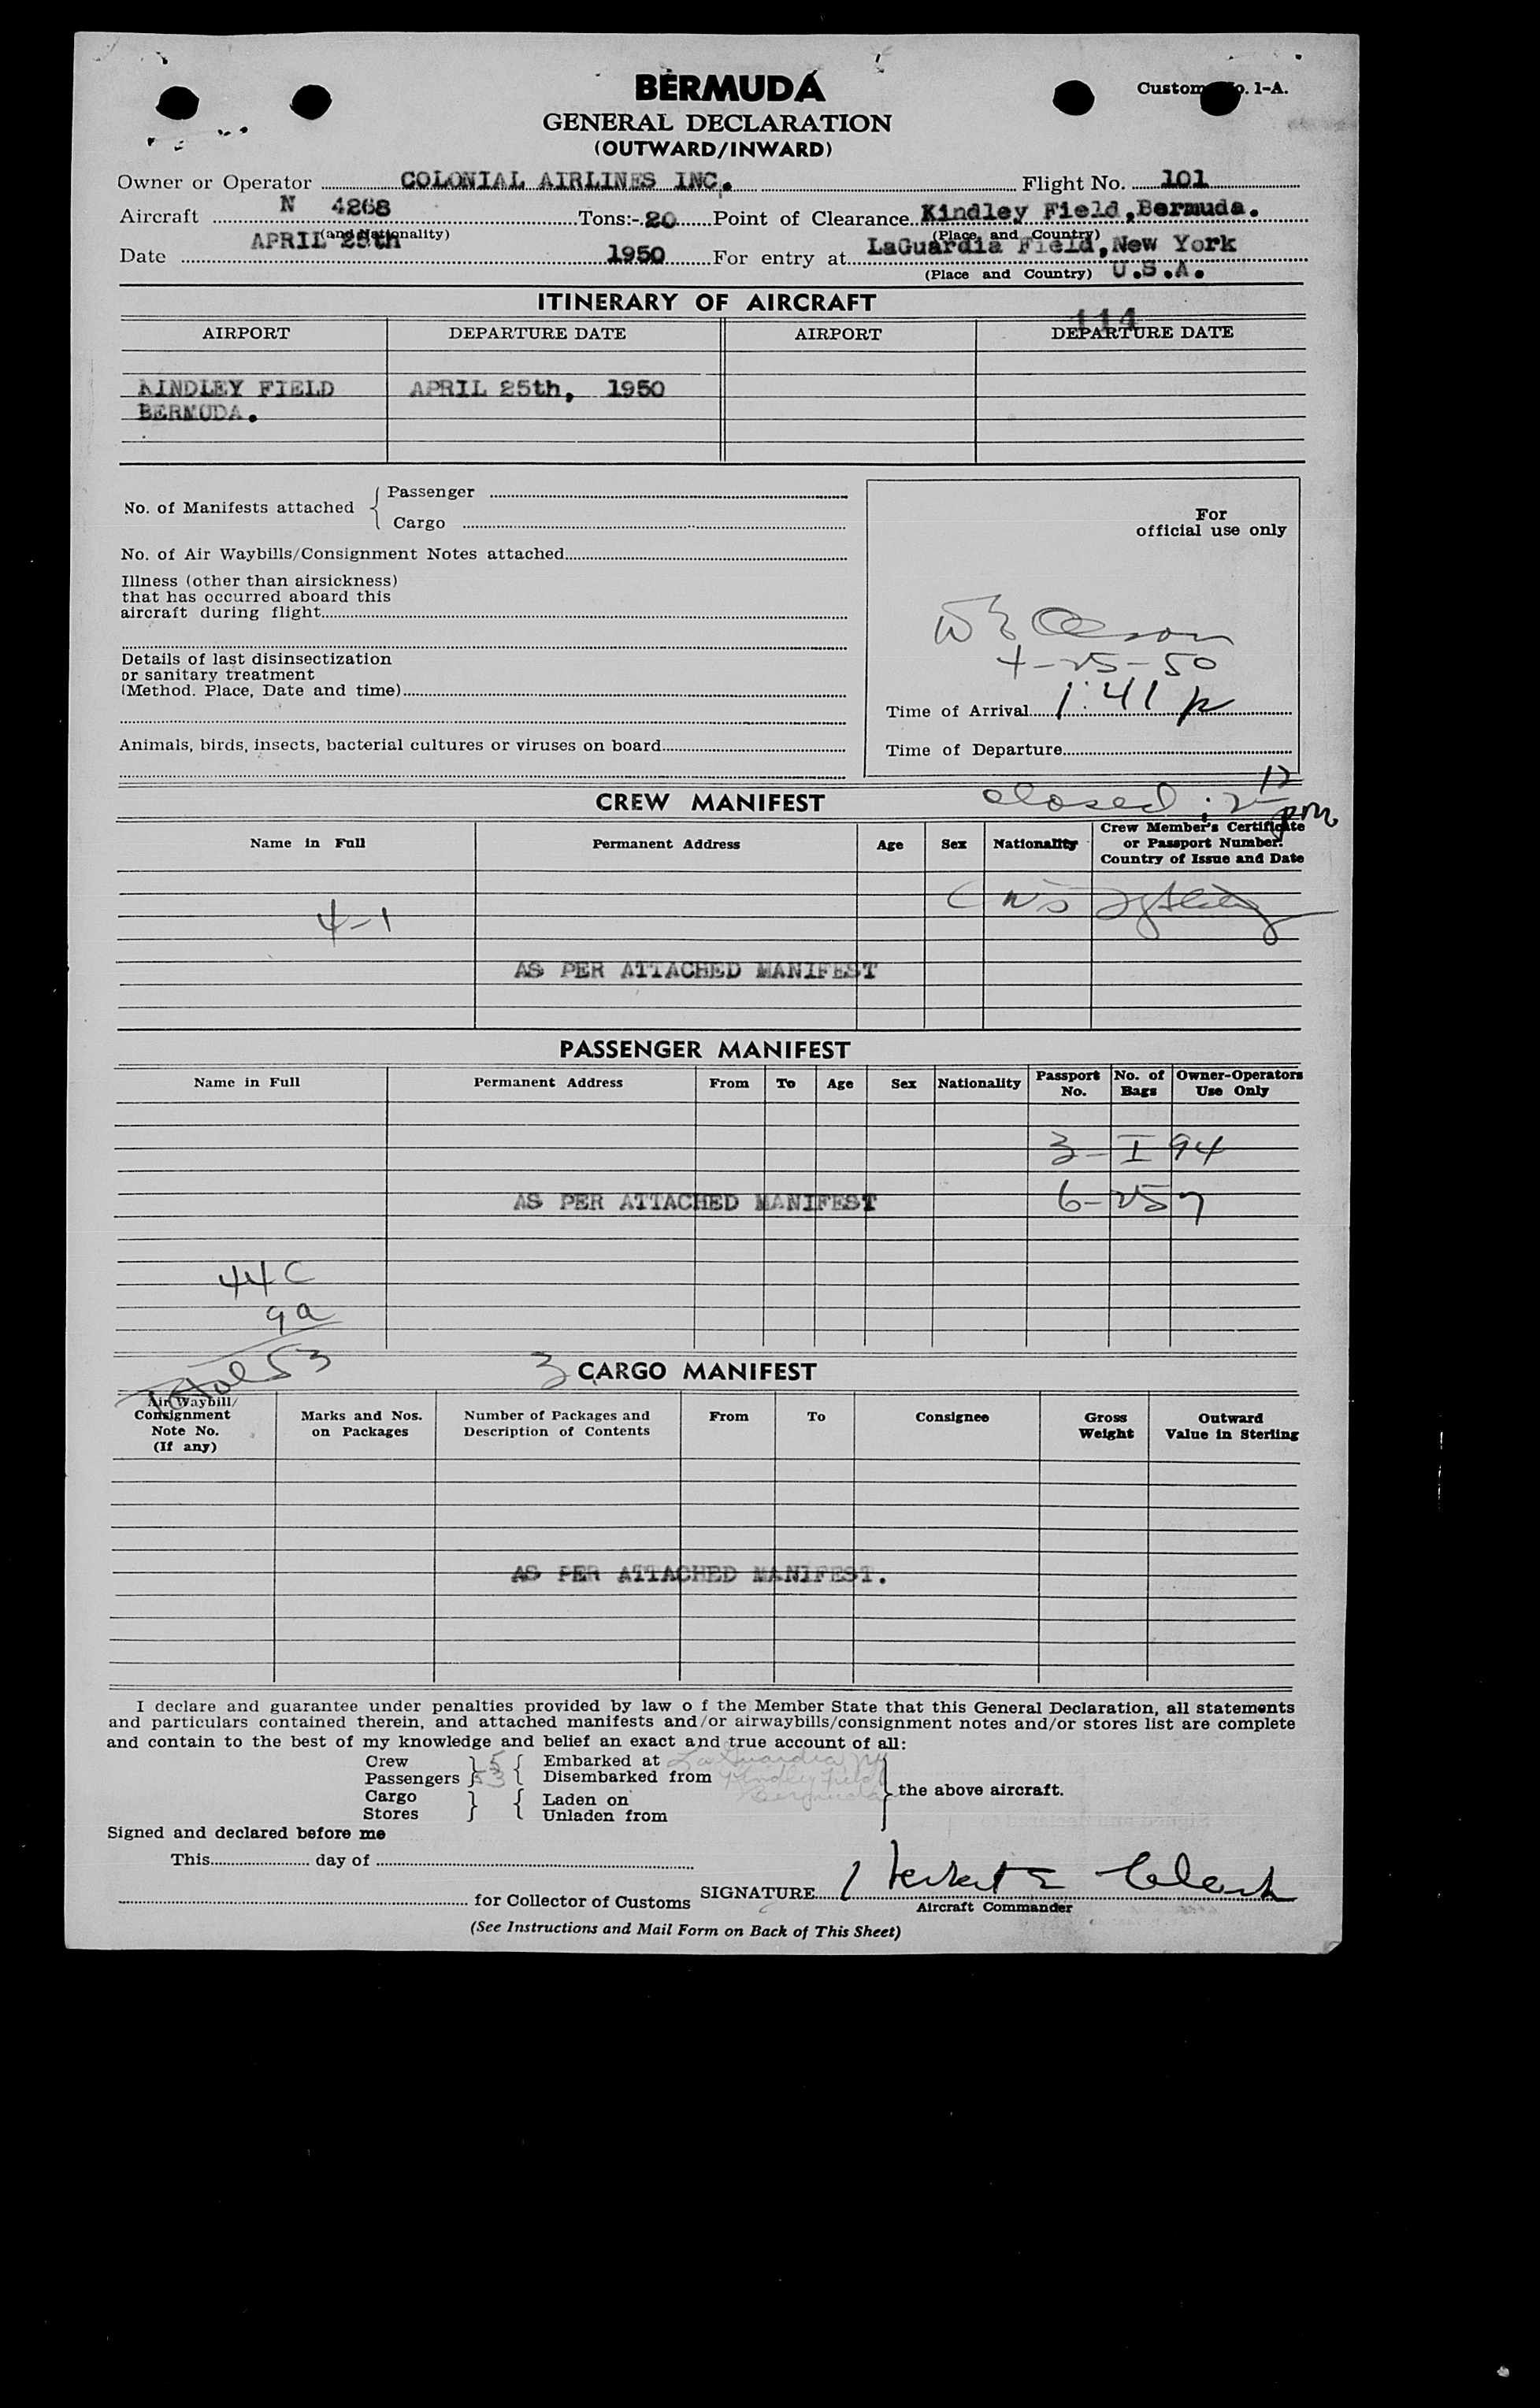 BERMUDA
Customs No. 1-A.
GENERAL DECLARATION
(OUTWARD/INWARD)
Owner or Operator COLONIAL AIRLINES INC. Flight No. 101
Aircraft N 4268 Tons:- 20 Point of Clearance Kindley Field, Bermuda.
(and Nationality) (Place and Country)
Date APRIL 25th 1950 For entry at LaGuardia Field, New York
(Place and Country) U.S.A.
ITINERARY OF AIRCRAFT
114
AIRPORT DEPARTURE DATE AIRPORT DEPARTURE DATE
KINDLEY FIELD APRIL 25th, 1950
BERMUDA.
No. of Manifests attached { Passenger
Cargo
For
official use only
No. of Air Waybills/Consignment Notes attached
Illness (other than airsickness)
that has occurred aboard this
aircraft during flight
4-25-50
Details of last disinsectization
or sanitary treatment
(Method. Place, Date and time)
Time of Arrival 1:41 p
Animals, birds, insects, bacterial cultures or viruses on board
Time of Departure
CREW MANIFEST
closed : 2 12 pm
Name in Full Permanent Address Age Sex Nationality Crew Member's Certificate
or Passport Number.
Country of Issue and Date
4-1
AS PER ATTACHED MANIFEST
PASSENGER MANIFEST
Name in Full Permanent Address From To Age Sex Nationality Passport No. No. of Bags Owner-Operators Use Only
3-I 94
AS PER ATTACHED MANIFEST
6-257
44 C
9 a
Total 53
3 CARGO MANIFEST
Air Waybill/
Consignment
Note No.
(If any)
Marks and Nos.
on Packages
Number of Packages and
Description of Contents
From To Consignee
Gross
Weight
Outward
Value in Sterling
AS PER ATTACHED MANIFEST.
I declare and guarantee under penalties provided by law o f the Member State that this General Declaration, all statements
and particulars contained therein, and attached manifests and/or airwaybills/consignment notes and/or stores list are complete
and contain to the best of my knowledge and belief an exact and true account of all:
Crew } 5 { Embarked at La Guardia NY
Passengers } 53 { Disembarked from Kindley Field
Bermuda
} the above aircraft.
Cargo } { Laden on
Stores } { Unladen from
Signed and declared before me
This day of
for Collector of Customs SIGNATURE Herbert E Clark
Aircraft Commander
(See Instructions and Mail Form on Back of This Sheet)